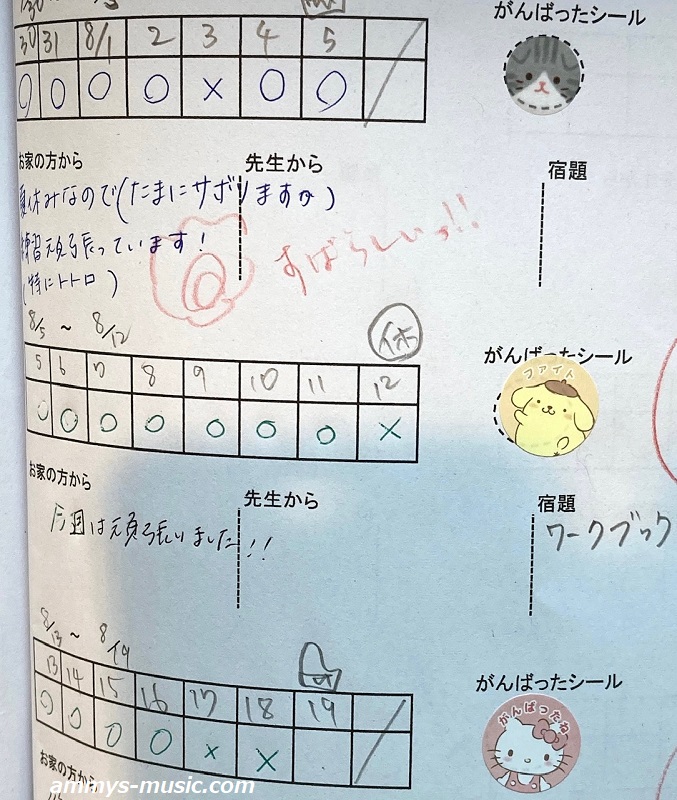 がんばったシール
30 31 8/1 2 3 4 5
○ ○ ○ ○ × ○ ○
お家の方から 先生から 宿題
夏休みなので(たまにサボりますが)
練習頑張っています!
(特にトトロ)
すばらしいっ!!
8/5 ~ 8/12
休
がんばったシール
ファイト
5 6 7 8 9 10 11 12
○ ○ ○ ○ ○ ○ ○ ×
お家の方から 先生から 宿題
今週は頑張りました!!
ワークブック
8/13 ~ 8/19
がんばったシール
がんばったね
13 14 15 16 17 18 19
○ ○ ○ ○ × ×
お家の方から
ammys-music.com